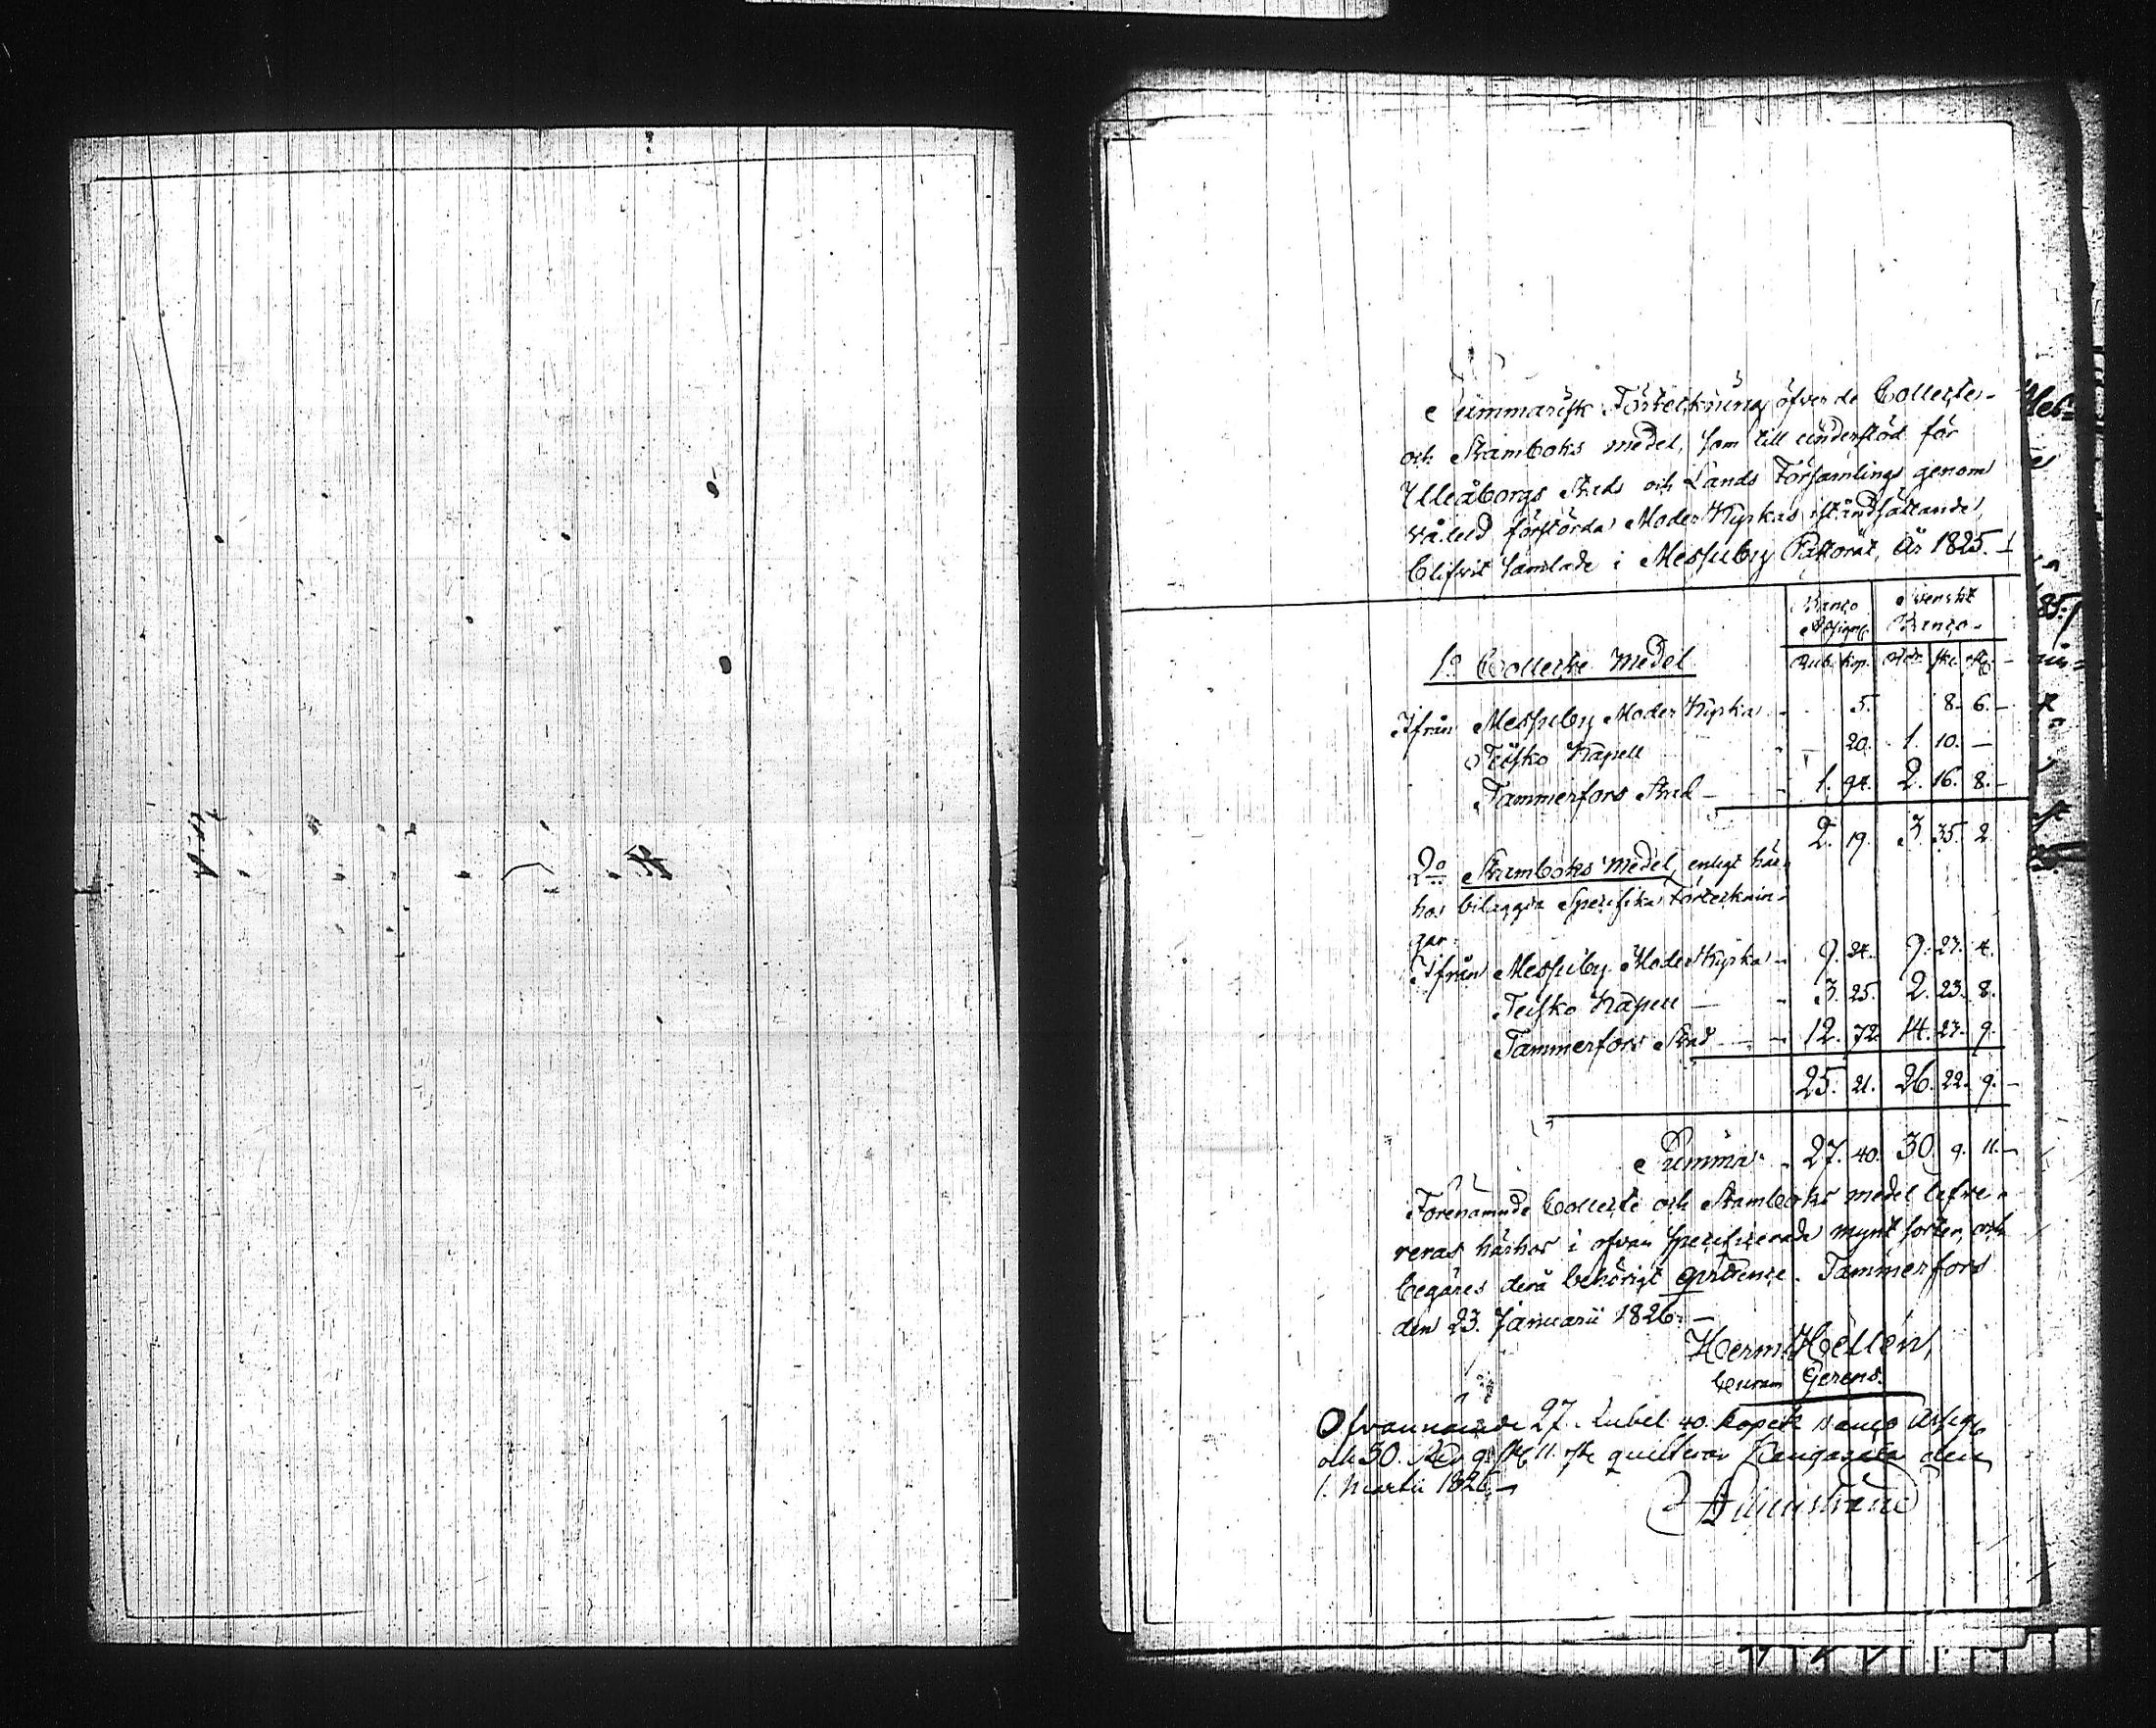 Summarisk Förteckning öfver de Collecte-
och Stamboks medel, som till understöd för
Uleåborgs Stads och Lands Församlings genom
våleld förstörda Moder Kyrkas iståndsättande,
blifvit samlade i Messuby Pastorat, År 1825.
Banco Assign. Svenskt Banco
1o Collecte Medel Rub. kop. Rdr. sk. rst.
Ifrån Messuby Moder Kyrka 5. 8. 6.
Teisko Kapell 20. 1. 10. —
Tammerfors Stad 1. 94. 2. 16. 8.
2. 19. 3. 35. 2
2o Stamboks Medel, enligt här-
hos bilaggda Specifika Förtecknin-
gar.
Ifrån Messuby Moder Kyrka 9. 24. 9. 27. 4.
Teisko Kapell 3. 25. 2. 23. 8.
Tammerfors Stad 12. 72. 14. 27. 9.
25. 21. 26. 22. 9.
Summa 27. 40. 30. 9. 11.
Förenämnde Collecte och Stamboks medel lefve-
reras härhos i ofvan specificerade mynt sorter, och
begäres derå behörigt qvittence. Tammerfors
den 23. Januarii 1826.
Herm. Hellén,
Curam Gerens.
Ofvannämde 27. Rubel 40. kopek Banco Assign.
och 30. Rdr 9. sk 11. rst quitteras Kangasala den
1. Martii 1826.